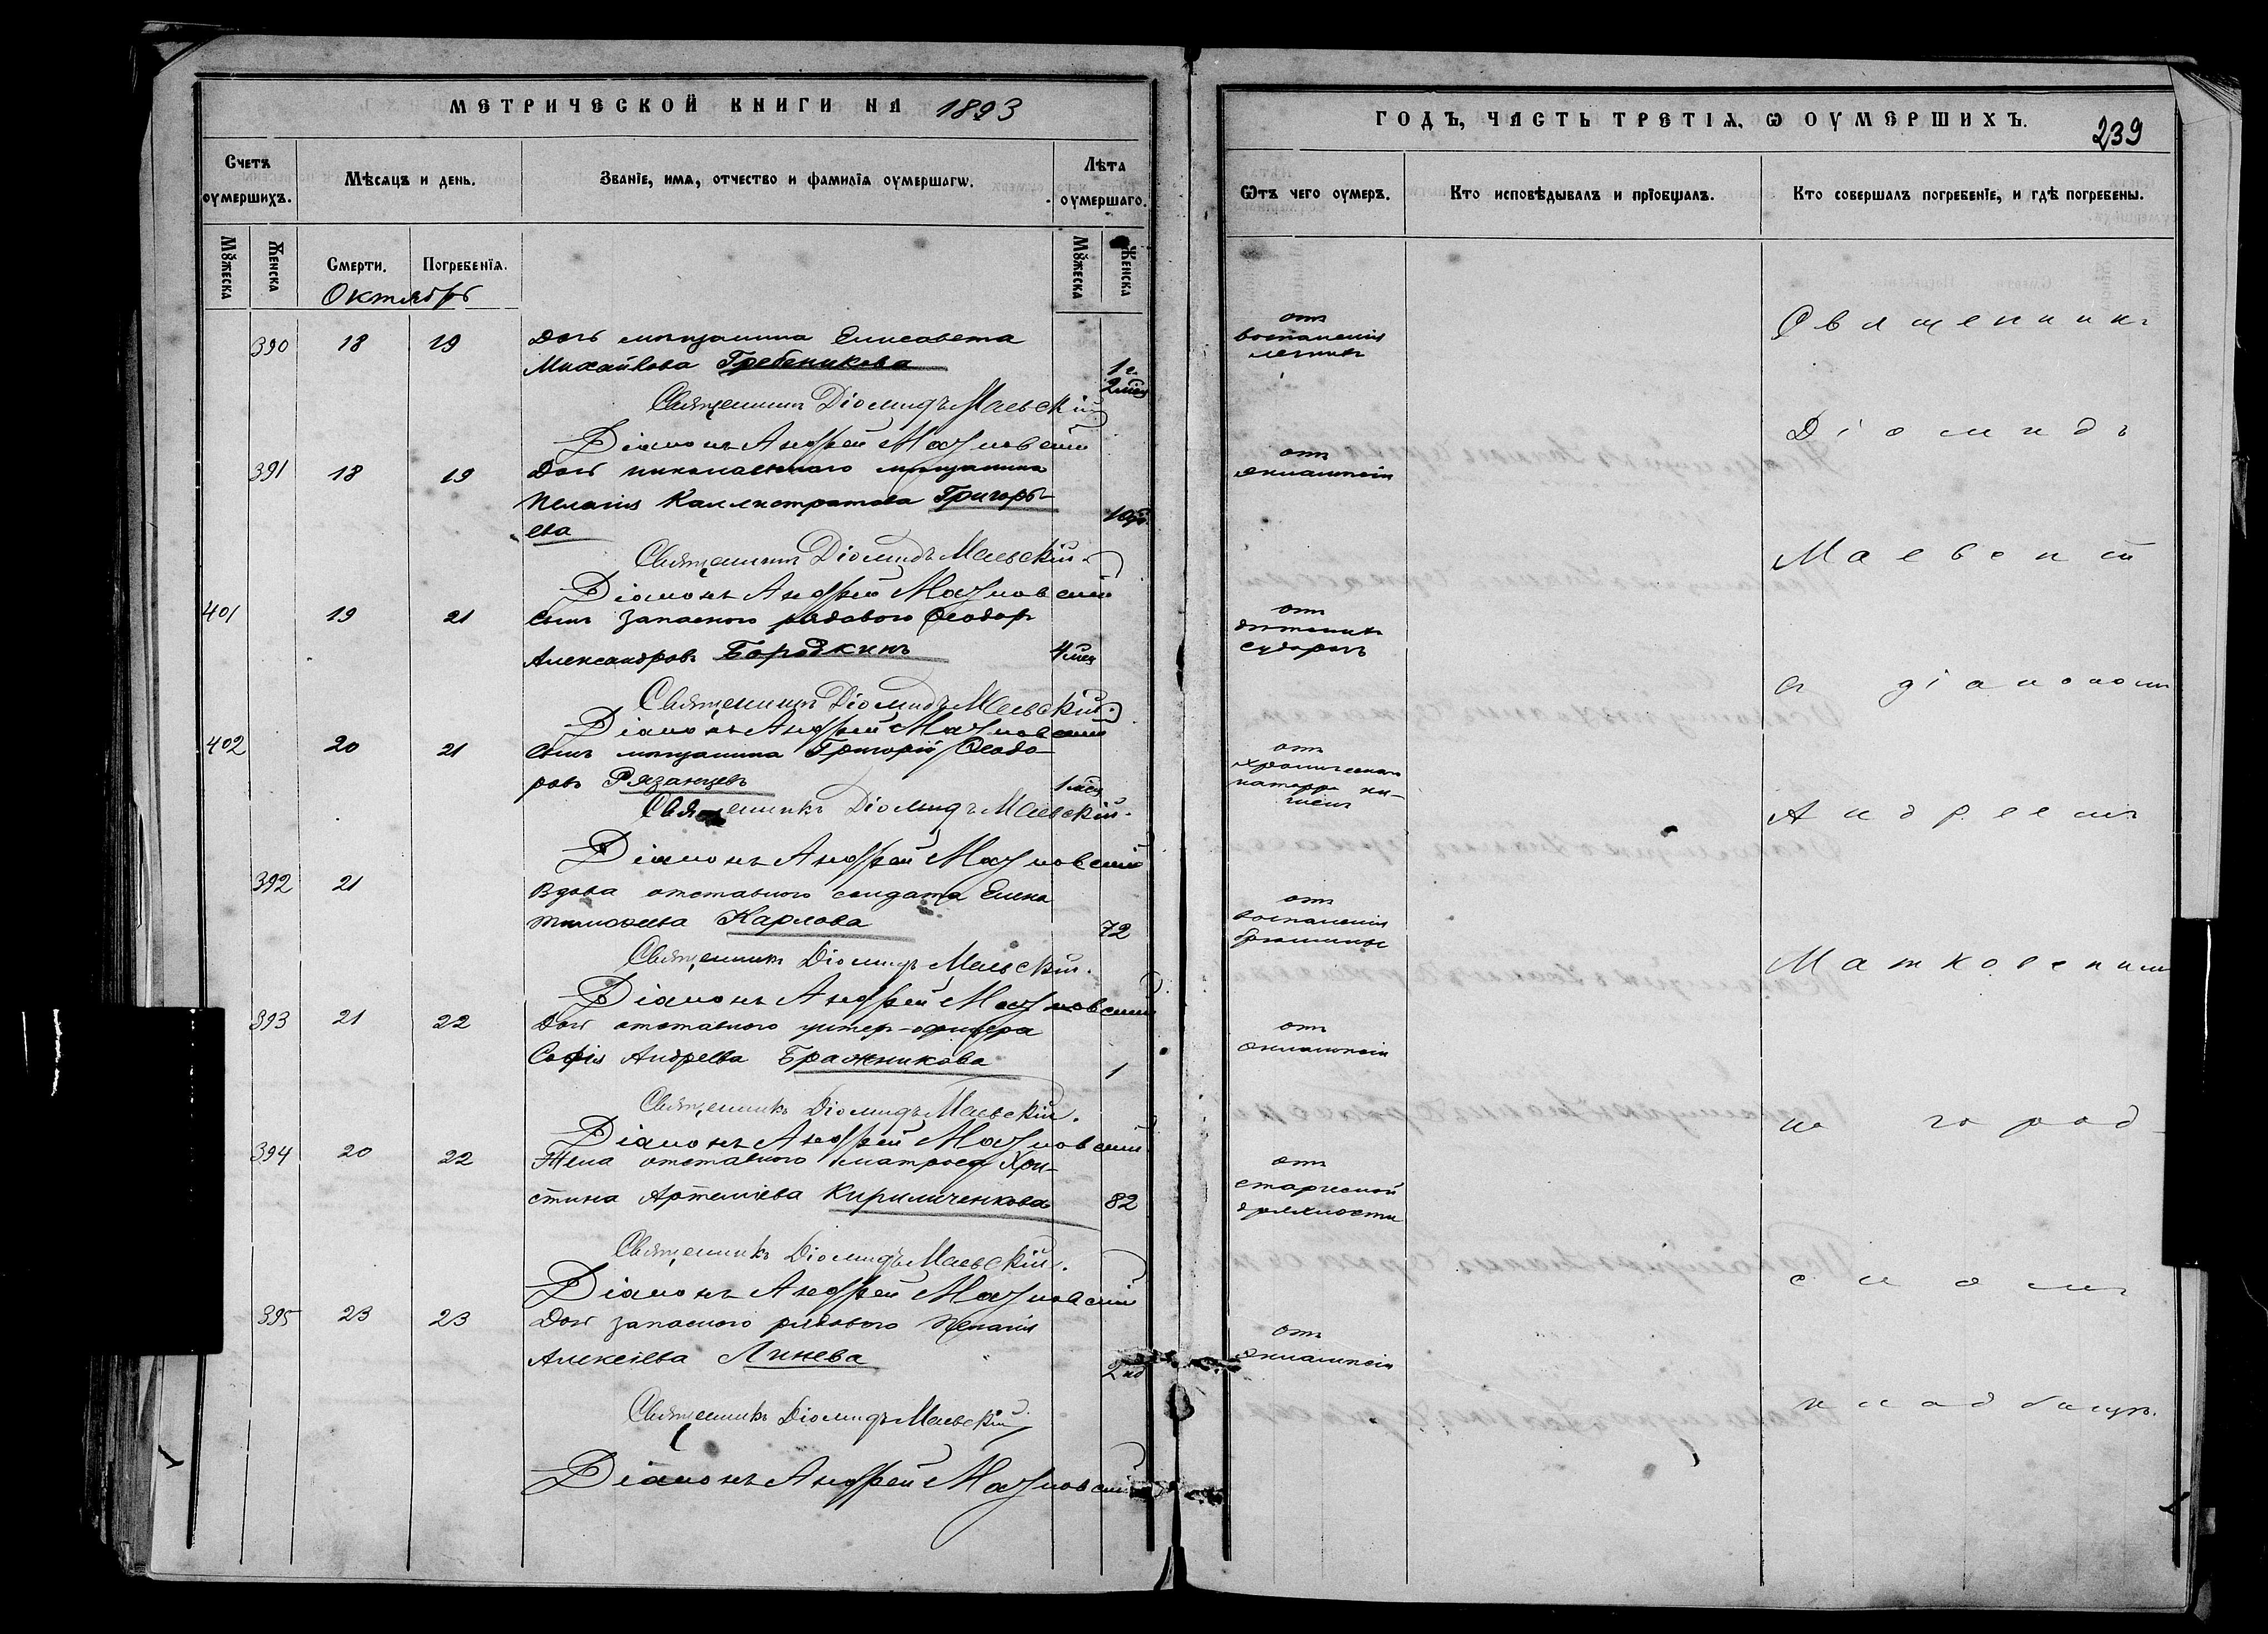 МЕТРИЧЕСКОЙ КНИГИ НА 1893
Счетъ оумершихъ.
Мѣсяцъ и день.
Званіе, имя, отчество и фамилія оумершагѡ.
Лѣта оумершаго.
Мꙋжеска
Женска
Смерти.
Погребенїя.
Мꙋжеска
Женска
Октябрь
390 18 19 Дочь мѣщанина Елисавета
Михайлова Гребеникова 1 г. 2 мѣс
Священникъ Діомидъ Маевскій
Діаконъ Андрей Матковскій
391 18 19 Дочь николаевскаго мѣщанина
Пелагія Каллистратова Григорь-
ева
Священникъ Діомидъ Маевскій
Діаконъ Андрей Матковскій
401 19 21 Сынъ запаснаго рядового Ѳеодоръ
Александровъ Бородкинъ 4 мѣс
Священникъ Діомидъ Маевскій
Діаконъ Андрей Матковскій
402 20 21 Сынъ мѣщанина Григорій Ѳеодо-
ровъ Рязанцевъ 1 мѣс
Священникъ Діомидъ Маевскій.
Діаконъ Андрей Матковскій
392 21 Вдова отставного солдата Елена
Тимоѳеева Карлова 72
Священникъ Діомидъ Маевскій.
Діаконъ Андрей Матковскій
393 21 22 Дочь отставного унтер-офицера
Софія Андреева Бражникова 1
Священникъ Діомидъ Маевскій.
Діаконъ Андрей Матковскій
394 20 22 Жена отставного матроса Хри-
стина Артеміева Кириличенкова 82
Священникъ Діомидъ Маевскій.
Діаконъ Андрей Матковскій
395 23 23 Дочь запаснаго рядового Пелагія
Алексіева Линева 2 нд
Священникъ Діомидъ Маевскій
Діаконъ Андрей Матковскій
ГОДЪ, ЧАСТЬ ТРЕТІѦ, Ѡ ОУМЕРШИХЪ.
239
Ѿтъ чего оумеръ.
Кто исповѣдывалъ и прїобщалъ.
Кто совершалъ погребенїе, и гдѣ погребены.
отъ
воспаленія
легкихъ
отъ
эклампсіи
отъ
дѣтскихъ
судорогъ
отъ
хроническаго
катарра ки-
шекъ
отъ
воспаленія
брюшины
отъ
эклампсіи
отъ
старческой
дряхлости
отъ
эклампсіи
Священникъ
Діомидъ
Маевскій
съ діакономъ
Андреемъ
Матковскимъ
на город-
скомъ
кладбищѣ.